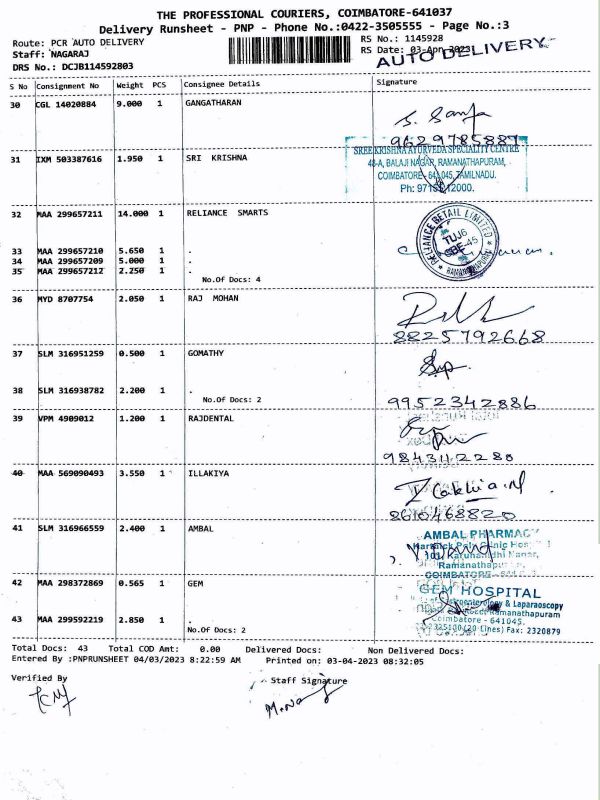 THE PROFESSIONAL COURIERS, COIMBATORE-641037
Delivery Runsheet - PNP - Phone No.:0422-3505555 - Page No.:3
Route: PCR AUTO DELIVERY
RS No.: 1145928
Staff: NAGARAJ
RS Date: 03-Apr-2023
AUTO DELIVERY
DRS No.: DCJB114592803
S No Consignment No Weight PCS Consignee Details Signature
30 CGL 14020884 9.000 1 GANGATHARAN
9629785887
31 IXM 503387616 1.950 1 SRI KRISHNA
SREE KRISHNA AYURVEDA SPECIALITY CENTRE
48-A, BALAJI NAGAR, RAMANATHAPURAM,
COIMBATORE - 641 045, TAMILNADU.
32 MAA 299657211 14.000 1 RELIANCE SMARTS
RELIANCE RETAIL LIMITED
TUJ6
CBE-45
RAMANATHAPURAM
33 MAA 299657210 5.650 1 .
34 MAA 299657209 5.000 1 .
35 MAA 299657212 2.250 1 .
No.Of Docs: 4
36 MYD 8707754 2.050 1 RAJ MOHAN
8825792668
37 SLM 316951259 0.500 1 GOMATHY
38 SLM 316938782 2.200 1 .
No.Of Docs: 2
9952342886
39 VPM 4909012 1.200 1 RAJDENTAL
9843142280
40 MAA 569090493 3.550 1 ILLAKIYA
8610468820
41 SLM 316966559 2.400 1 AMBAL
AMBAL PHARMACY
Ramanathapuram
COIMBATORE
42 MAA 298372869 0.565 1 GEM
GEM HOSPITAL
& Laparaoscopy
Ramanathapuram
Coimbatore - 641045.
(20 Lines) Fax: 2320879
43 MAA 299592219 2.850 1 .
No.Of Docs: 2
Total Docs: 43 Total COD Amt: 0.00 Delivered Docs: Non Delivered Docs:
Entered By :PNPRUNSHEET 04/03/2023 8:22:59 AM Printed on: 03-04-2023 08:32:05
Verified By
Staff Signature